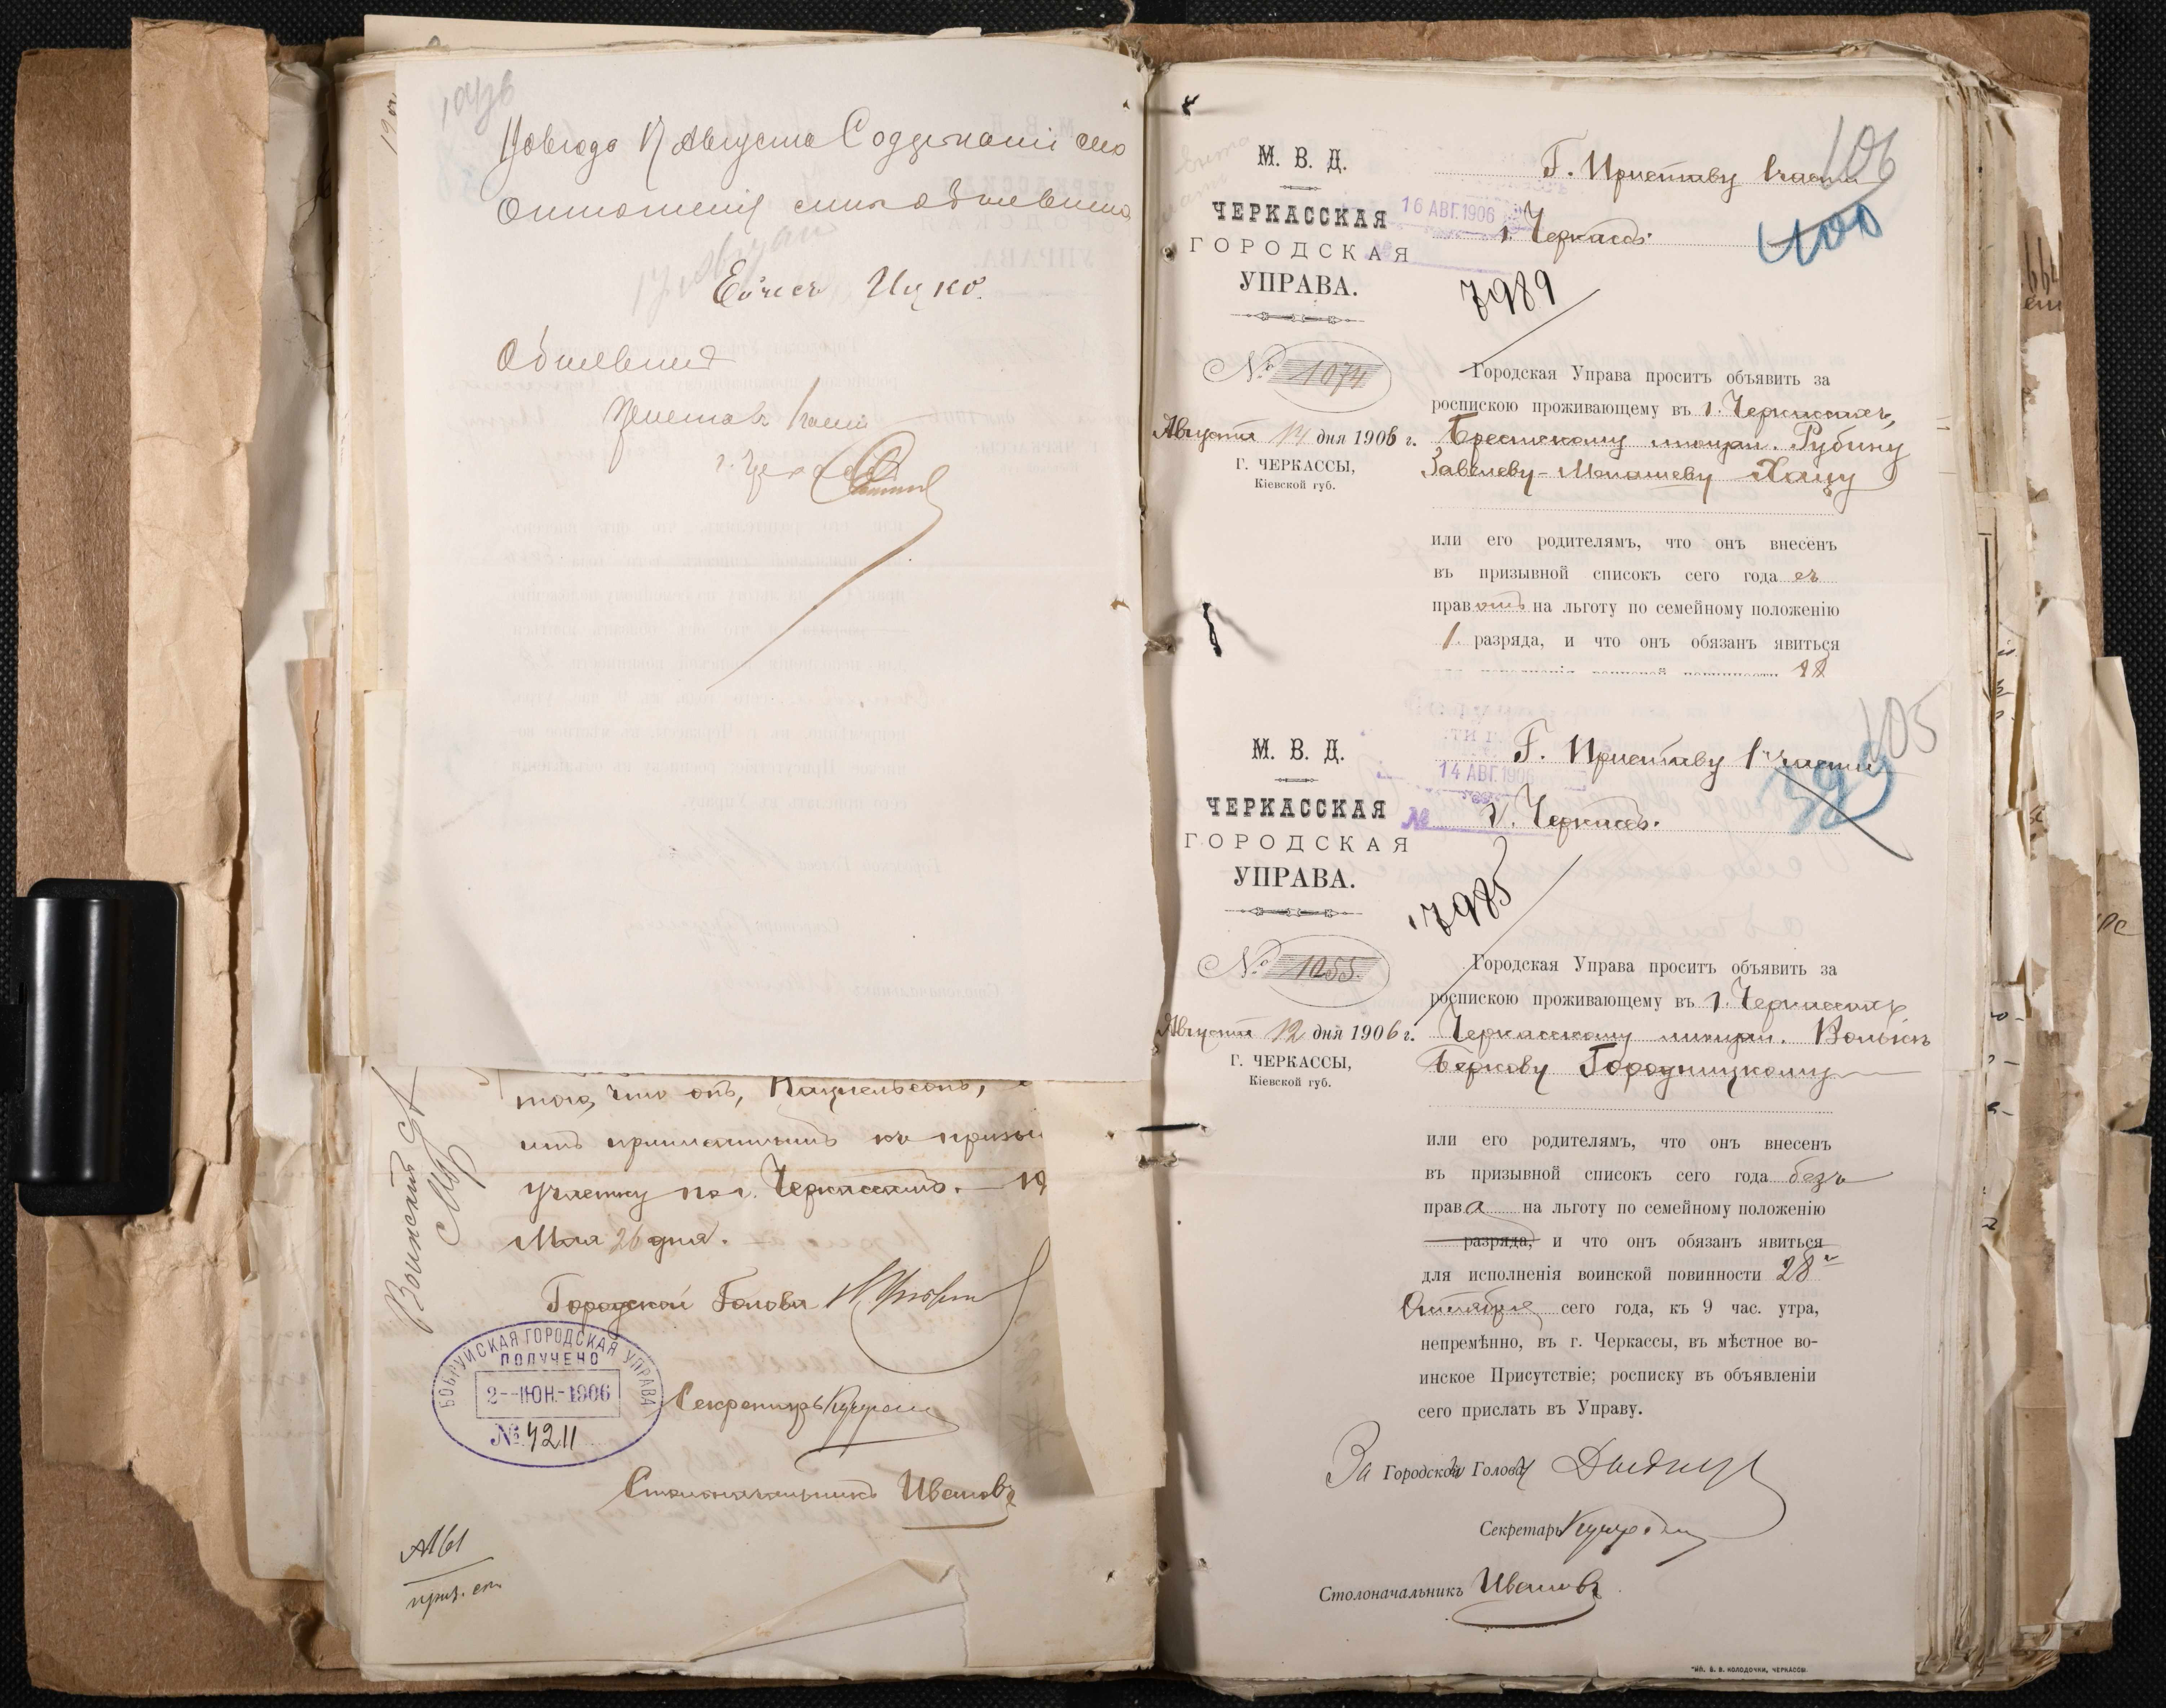 1906 года 17 Августа Содержаніе сего
Отношенія мнѣ объявлено
Ицко
Объявилъ
Приставъ 1 части
г. Черкассъ
того, что онъ, Кацнельсонъ,
къ призыв
участку по г. Черкассамъ. 19
Мая 26 дня.
Городской Голова
Секретарь
Столоначальникъ Ивановъ
Воинскій
БОБРУЙСКАЯ ГОРОДСКАЯ УПРАВА
ПОЛУЧЕНО
2-ІЮН.-1906
№ 4211
приз. сп.
106
М. В. Д.
ЧЕРКАССКАЯ
ГОРОДСКАЯ
УПРАВА.
Г. Приставу 1 части
г. Черкассъ.
16 АВГ. 1906
400
7989
№ 1074
Августа 14 дня 1906 г.
Г. ЧЕРКАССЫ,
Кіевской губ.
Городская Управа проситъ объявить за
роспискою проживающему въ г. Черкассахъ,
мѣщан. Рубину
Хацу
или его родителямъ, что онъ внесенъ
въ призывной списокъ сего года съ
правомъ на льготу по семейному положенію
1. разряда, и что онъ обязанъ явиться
для исполненія воинской повинности 28
105
М. В. Д.
ЧЕРКАССКАЯ
ГОРОДСКАЯ
УПРАВА.
Г. Приставу 1й части
г. Черкассъ.
14 АВГ. 1906
№
7985
№ 1055.
Августа 12 дня 1906 г.
Г. ЧЕРКАССЫ,
Кіевской губ.
Городская Управа проситъ объявить за
роспискою проживающему въ г. Черкассахъ
Черкасскому мѣщан. Волькѣ
Беркову Городницкому
или его родителямъ, что онъ внесенъ
въ призывной списокъ сего года безъ
права на льготу по семейному положенію
разряда, и что онъ обязанъ явиться
для исполненія воинской повинности 28го
Октября сего года, къ 9 час. утра,
непремѣнно, въ г. Черкассы, въ мѣстное во-
инское Присутствіе; росписку въ объявленіи
сего прислать въ Управу.
За Городского Голову
Секретарь
Столоначальникъ Ивановъ
ТИП. В. В. КОЛОДОЧКИ, ЧЕРКАССЫ.